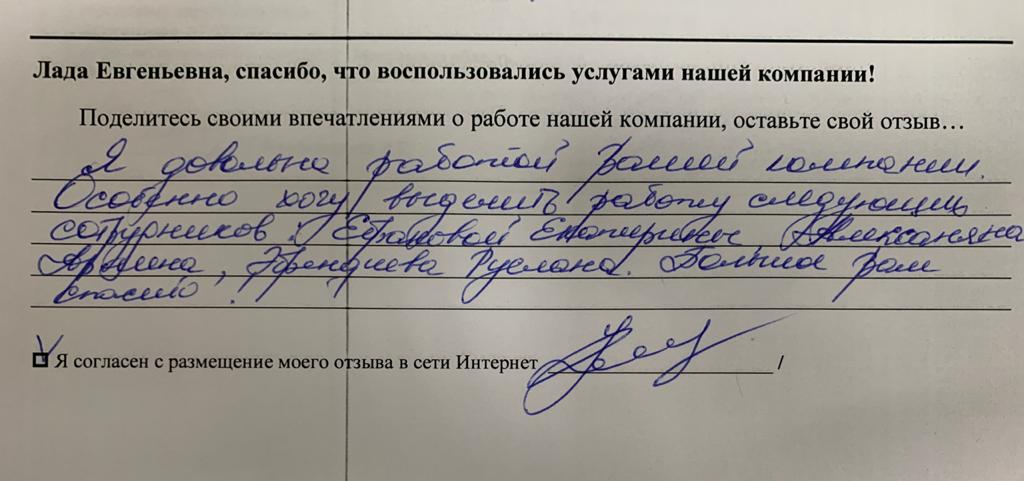 Лада Евгеньевна, спасибо, что воспользовались услугами нашей компании!
Поделитесь своими впечатлениями о работе нашей компании, оставьте свой отзыв…
Я довольна работой Вашей компании.
Особенно хочу выделить работу следующих
сотрудников: Екатерины, Алексаняна
Эфендиева Руслана. Большое Вам
спасибо!
Я согласен с размещение моего отзыва в сети Интернет /